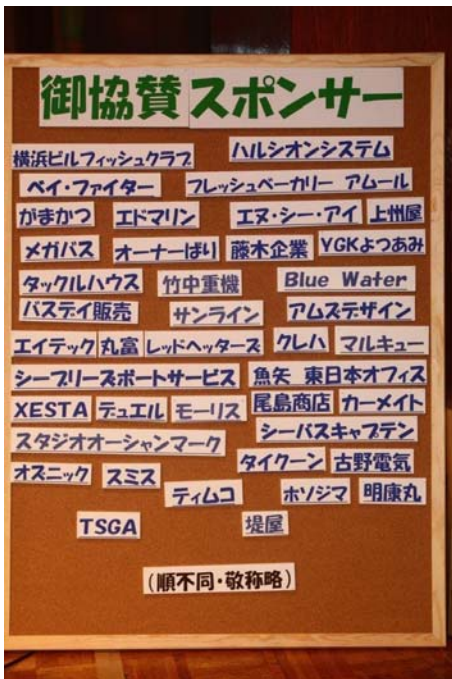 御協賛スポンサー
横浜ビルフィッシュクラブ ハルシオンシステム
ベイ・ファイター フレッシュベーカリー アムール
がまかつ エドマリン エヌ・シー・アイ 上州屋
メガバス オーナーばり 藤木企業 YGKよつあみ
タックルハウス 竹中重機 Blue Water
バスデイ販売 サンライン アムズデザイン
エイテック 丸富 レッドヘッターズ クレハ マルキュー
シーブリーズボートサービス 魚矢 東日本オフィス
XESTA デュエル モーリス 尾島商店 カーメイト
スタジオオーシャンマーク シーバスキャプテン
オズニック スミス タイクーン 古野電気
ティムコ ホソジマ 明康丸
TSGA 堤屋
(順不同・敬称略)